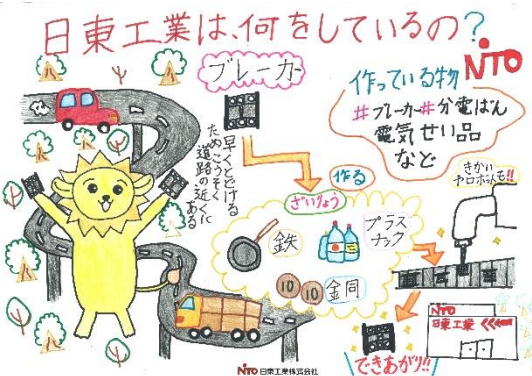 日東工業は、何をしているの?
NITO
ブレーカー
作っている物
#ブレーカー#分電ばん
電気せい品
など
早くとどける
ためこうそく
道路の近くに
ある
作る
ざいりょう
鉄
プラス
チック
10 10 金同
きかい
やロボットも!!
NITO
日東工業
できあがり!!
NITO 日東工業株式会社